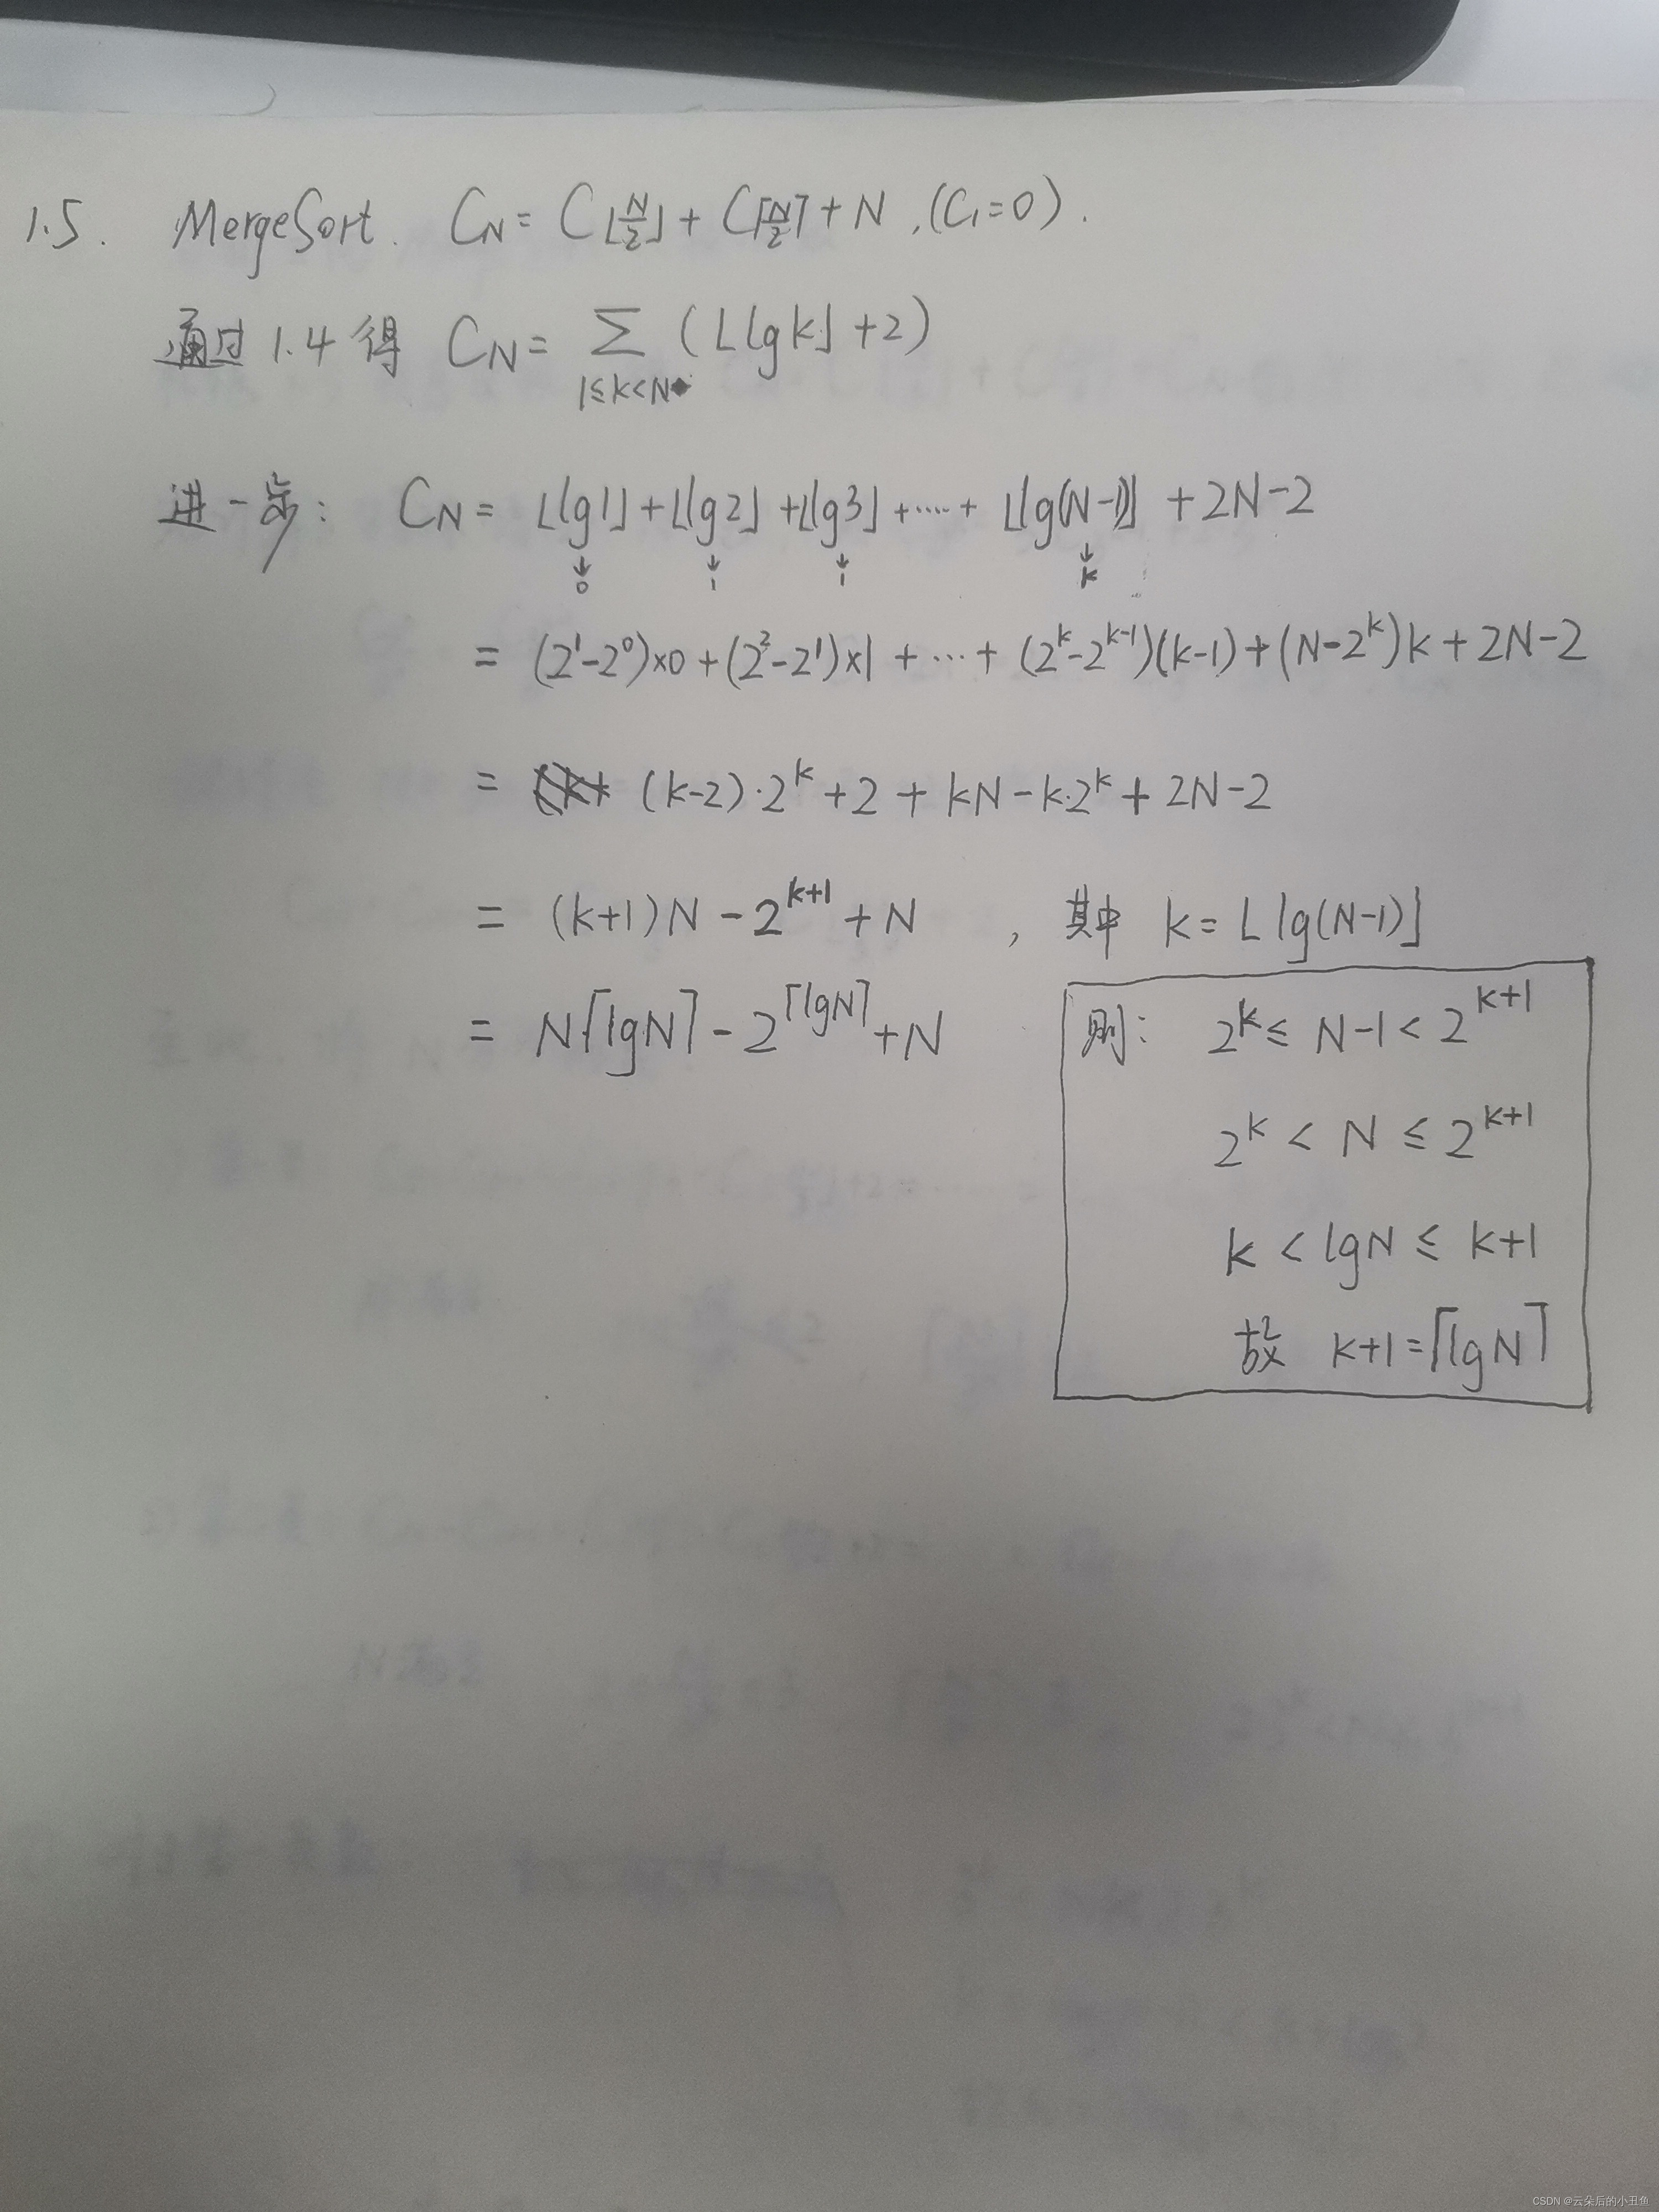 1.5. MergeSort. C_N = C_⌊N/2⌋ + C_⌈N/2⌉ + N, (C₁=0).
通过 1.4 得 C_N = Σ_{1≤k<N} (⌊lg k⌋ + 2)
进一步: C_N = ⌊lg1⌋ + ⌊lg2⌋ + ⌊lg3⌋ + ····· + ⌊lg(N-1)⌋ + 2N-2
↓ ↓ ↓ ↓
0 1 1 k
= (2¹-2⁰)×0 + (2²-2¹)×1 + ··· + (2^k-2^{k-1})(k-1) + (N-2^k)k + 2N-2
= (k-2)·2^k + 2 + kN - k·2^k + 2N-2
= (k+1)N - 2^{k+1} + N , 其中 k = ⌊lg(N-1)⌋
= N⌈lgN⌉ - 2^{⌈lgN⌉} + N
则: 2^k ≤ N-1 < 2^{k+1}
2^k < N ≤ 2^{k+1}
k < lgN ≤ k+1
故 k+1 = ⌈lgN⌉
CSDN @云朵后的小丑鱼